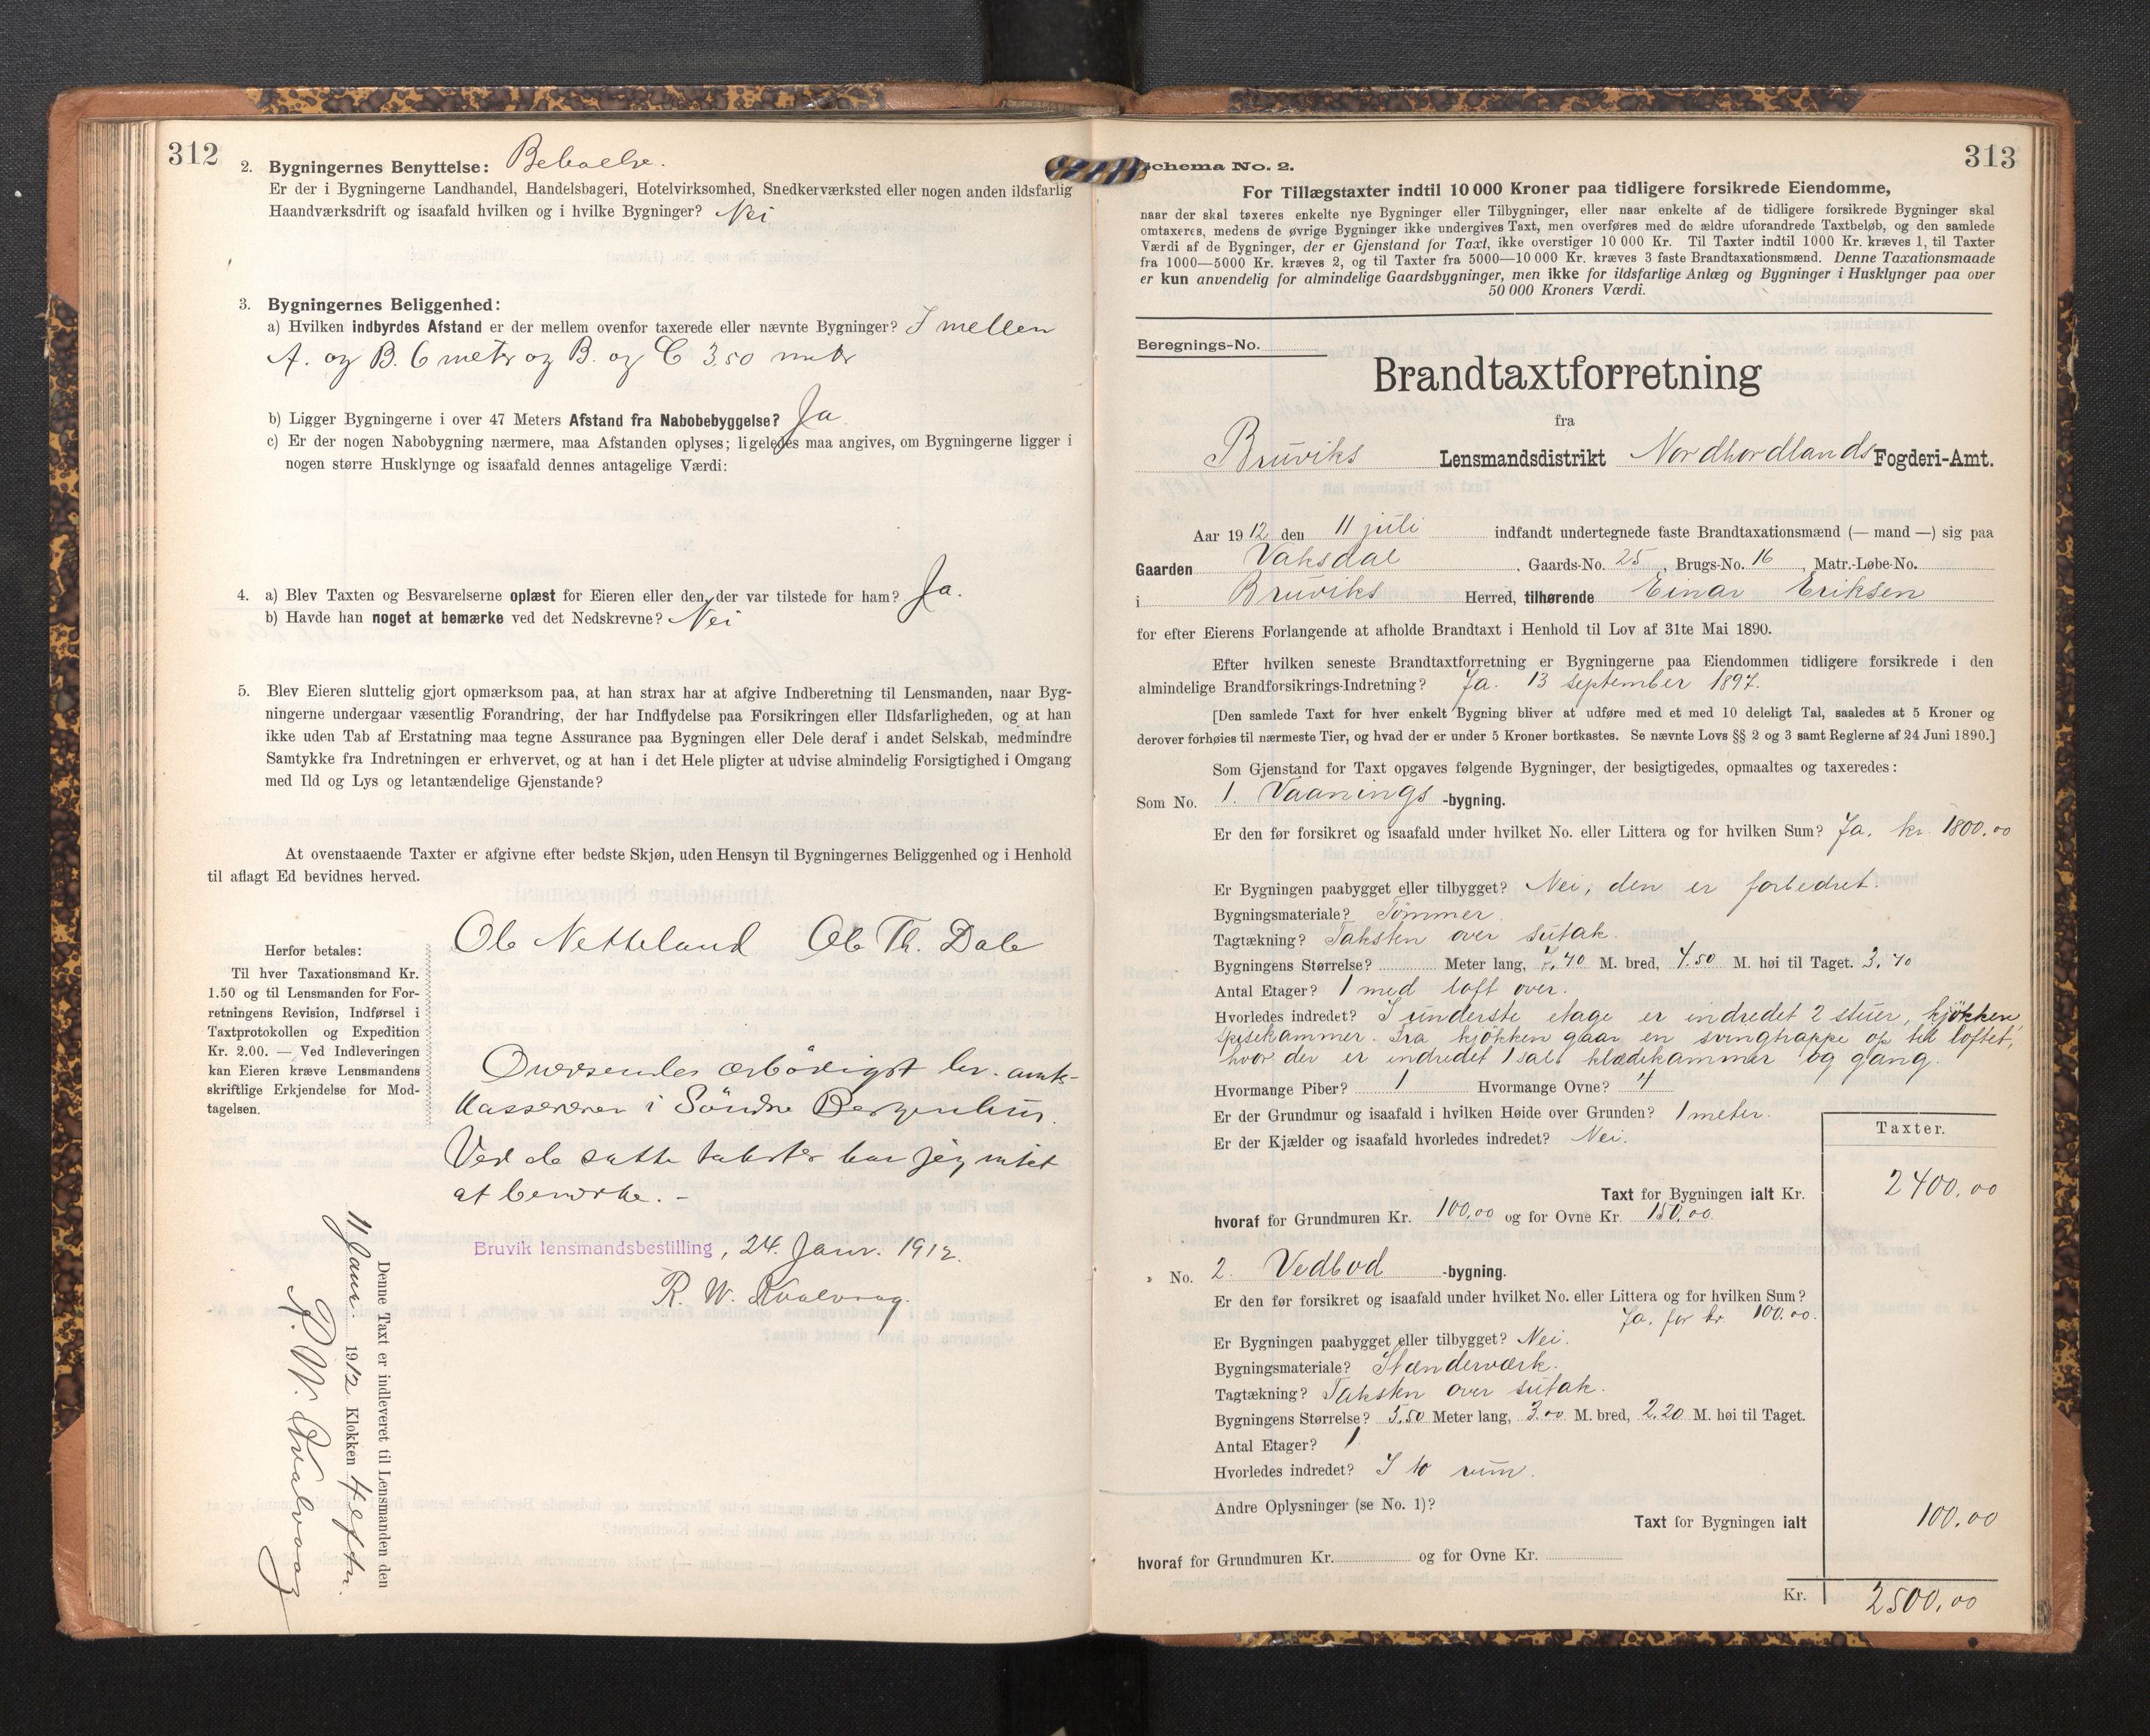 312
2. Bygningernes Benyttelse: Beboelse.
Er der i Bygningerne Landhandel, Handelsbageri, Hotelvirksomhed, Snedkerværksted eller nogen anden ildsfarlig
Haandværksdrift og isaafald hvilken og i hvilke Bygninger? Nei
3. Bygningernes Beliggenhed:
a) Hvilken indbyrdes Afstand er der mellem ovenfor taxerede eller nævnte Bygninger? I mellem
A. og B. 6 meter og B. og C 3.50 meter
b) Ligger Bygningerne i over 47 Meters Afstand fra Nabobebyggelse? Ja
c) Er der nogen Nabobygning nærmere, maa Afstanden oplyses; ligeledes maa angives, om Bygningerne ligger i
nogen større Husklynge og isaafald dennes antagelige Værdi:
4. a) Blev Taxten og Besvarelserne oplæst for Eieren eller den, der var tilstede for ham? Ja.
b) Havde han noget at bemærke ved det Nedskrevne? Nei
5. Blev Eieren sluttelig gjort opmærksom paa, at han strax har at afgive Indberetning til Lensmanden, naar Byg-
ningerne undergaar væsentlig Forandring, der har Indflydelse paa Forsikringen eller Ildsfarligheden, og at han
ikke uden Tab af Erstatning maa tegne Assurance paa Bygningen eller Dele deraf i andet Selskab, medmindre
Samtykke fra Indretningen er erhvervet, og at han i det Hele pligter at udvise almindelig Forsigtighed i Omgang
med Ild og Lys og letantændelige Gjenstande?
At ovenstaaende Taxter er afgivne efter bedste Skjøn, uden Hensyn til Bygningernes Beliggenhed og i Henhold
til aflagt Ed bevidnes herved.
Ole Netteland Ole Th. Dale
Herfor betales:
Til hver Taxationsmand Kr.
1.50 og til Lensmanden for For-
retningens Revision, Indførsel i
Taxtprotokollen og Expedition
Kr. 2.00. — Ved Indleveringen
kan Eieren kræve Lensmandens
skriftlige Erkjendelse for Mod-
tagelsen.
Oversendes ærbödigst hr. amts-
kassereren i Söndre Bergenhus.
Ved de satte takster har jeg intet
at bemerke. -
Bruvik lensmandsbestilling, 24. Janr. 1912.
R. W. Kvalvaag.
Denne Taxt er indleveret til Lensmanden den
11 Janr. 1912 Klokken 4 eftm.
R. W. Kvalvaag
313
Schema No. 2.
For Tillægstaxter indtil 10 000 Kroner paa tidligere forsikrede Eiendomme,
naar der skal taxeres enkelte nye Bygninger eller Tilbygninger, eller naar enkelte af de tidligere forsikrede Bygninger skal
omtaxeres, medens de øvrige Bygninger ikke undergives Taxt, men overføres med de ældre uforandrede Taxtbeløb, og den samlede
Værdi af de Bygninger, der er Gjenstand for Taxt, ikke overstiger 10 000 Kr. Til Taxter indtil 1000 Kr. kræves 1, til Taxter
fra 1000—5000 Kr. kræves 2, og til Taxter fra 5000—10 000 Kr. kræves 3 faste Brandtaxationsmænd. Denne Taxationsmaade
er kun anvendelig for almindelige Gaardsbygninger, men ikke for ildsfarlige Anlæg og Bygninger i Husklynger paa over
50 000 Kroners Værdi.
Beregnings-No.
Brandtaxtforretning
fra
Bruviks Lensmandsdistrikt Nordhordlands Fogderi-Amt.
Aar 1912 den 11 juli indfandt undertegnede faste Brandtaxationsmænd (— mand —) sig paa
Gaarden Vaksdal, Gaards-No. 25, Brugs-No. 16, Matr.-Løbe-No.
i Bruviks Herred, tilhørende Einar Eriksen
for efter Eierens Forlangende at afholde Brandtaxt i Henhold til Lov af 31te Mai 1890.
Efter hvilken seneste Brandtaxtforretning er Bygningerne paa Eiendommen tidligere forsikrede i den
almindelige Brandforsikrings-Indretning? Ja. 13 september 1897.
[Den samlede Taxt for hver enkelt Bygning bliver at udføre med et med 10 deleligt Tal, saaledes at 5 Kroner og
derover forhøies til nærmeste Tier, og hvad der er under 5 Kroner bortkastes. Se nævnte Lovs §§ 2 og 3 samt Reglerne af 24 Juni 1890.]
Som Gjenstand for Taxt opgaves følgende Bygninger, der besigtigedes, opmaaltes og taxeredes:
Som No. 1. Vaanings-bygning.
Er den før forsikret og isaafald under hvilket No. eller Littera og for hvilken Sum? Ja. kr. 1800.00
Er Bygningen paabygget eller tilbygget? Nei, den er forbedret.
Bygningsmateriale? Tömmer.
Tagtækning? Taksten over sutak.
Bygningens Størrelse? Meter lang, 7.40 M. bred, 4.50 M. høi til Taget. 3.40
Antal Etager? 1 med loft over.
Hvorledes indredet? I underste etage er indredet 2 stuer, kjökken,
spisekammer. Fra kjökken gaar en svingtrappe op til loftet,
hvor der er indredet 1 sal, klædekammer og gang.
Hvormange Piber? 1 Hvormange Ovne? 4
Er der Grundmur og isaafald i hvilken Høide over Grunden? 1 meter.
Er der Kjælder og isaafald hvorledes indredet? Nei.
Taxter.
Taxt for Bygningen ialt Kr. 2400,00
hvoraf for Grundmuren Kr. 100,00 og for Ovne Kr. 150,00.
» No. 2. Vedbod-bygning.
Er den før forsikret og isaafald under hvilket No. eller Littera og for hvilken Sum?
Ja, for kr. 100.00.
Er Bygningen paabygget eller tilbygget? Nei.
Bygningsmateriale? Stænderværk.
Tagtækning? Taksten over sutak.
Bygningens Størrelse? 5.50 Meter lang, 3.00 M. bred, 2.20 M. høi til Taget.
Antal Etager? 1
Hvorledes indredet? I to rum.
Andre Oplysninger (se No. 1)?
Taxt for Bygningen ialt 100.00
hvoraf for Grundmuren Kr. og for Ovne Kr.
Kr. 2500,00